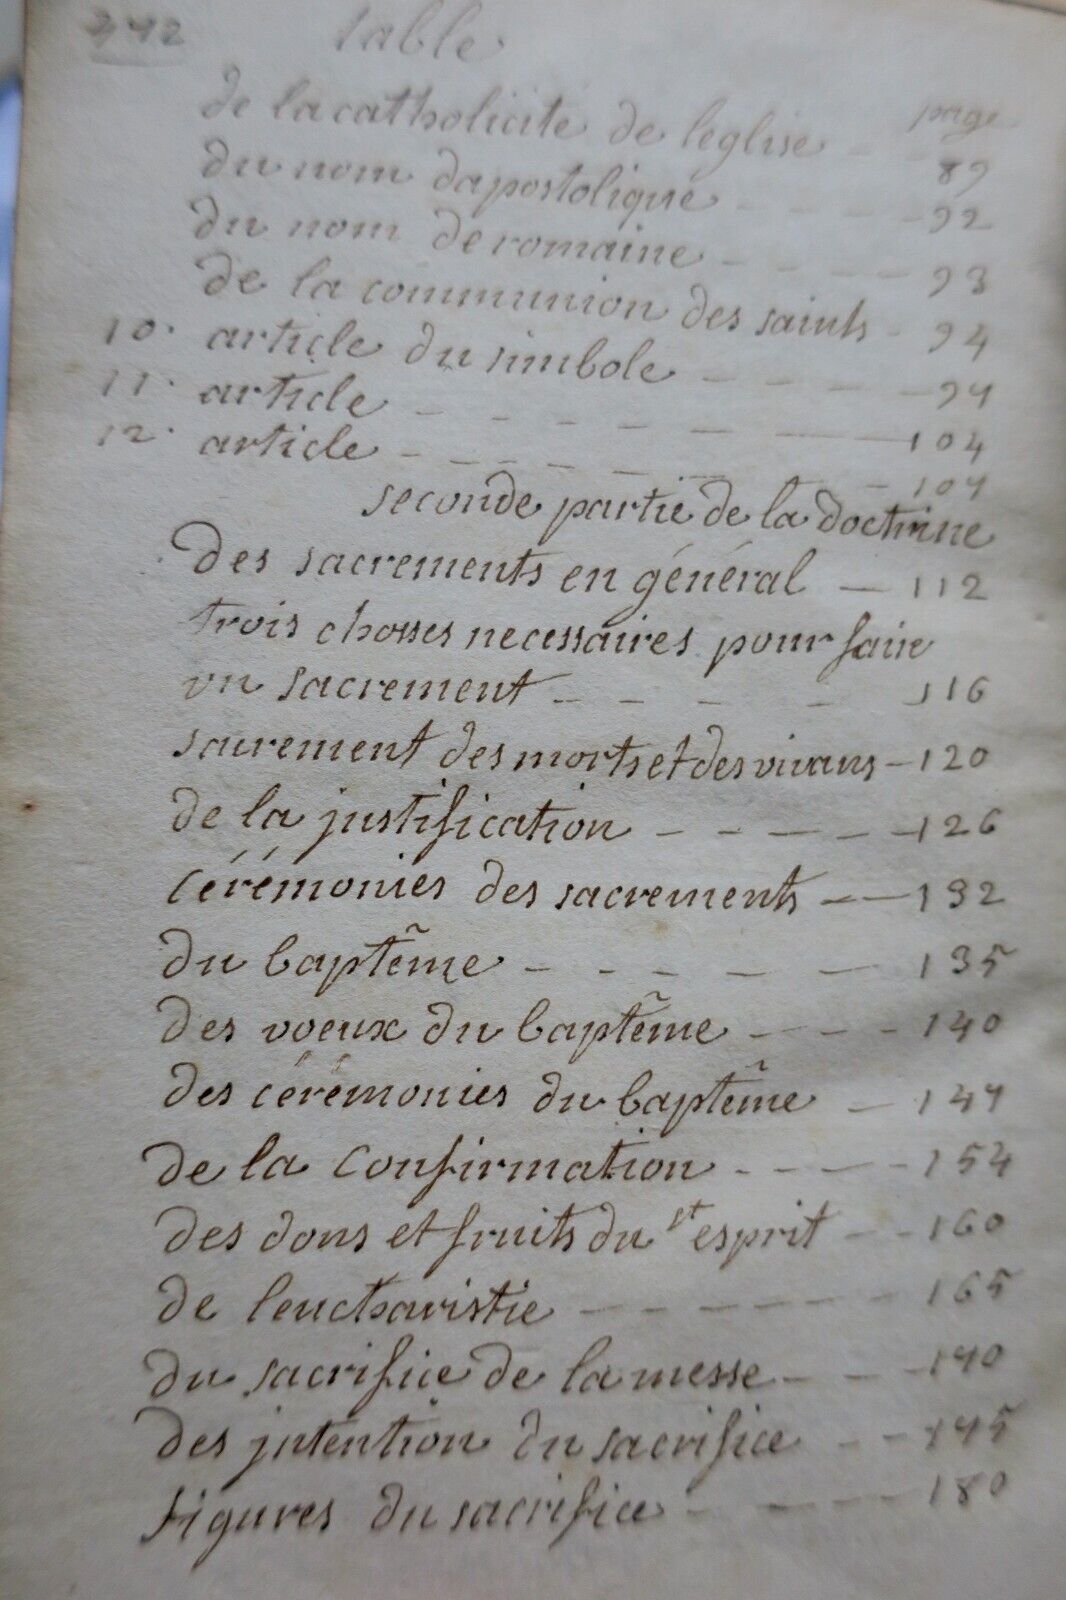 342 table
page
de la catholicité de leglise - - 89
du nom dapostolique - - - - 92
du nom de romaine - - - - 93
de la communion des saints - 94
10. article du simbole - - - - 97
11. article - - - - - - 104
12. article - - - - - - - 107
seconde partie de la doctrine
des sacrements en général - 112
trois chosses necessaires pour faire
vn sacrement - - - - - 116
sacrement des morts et des vivans - 120
de la justification - - - - - 126
cérémonies des sacrements - - 132
du baptême - - - - - - 135
des voeux du baptême - - - 140
des cérémonies du baptême - 147
de la confirmation - - - - 154
des dons et fruits du st esprit - - 160
de leucharistie - - - - - - 165
du sacrifice de la messe - - - 170
des jntention du sacrifice - - 175
figures du sacrifice - - - - 180